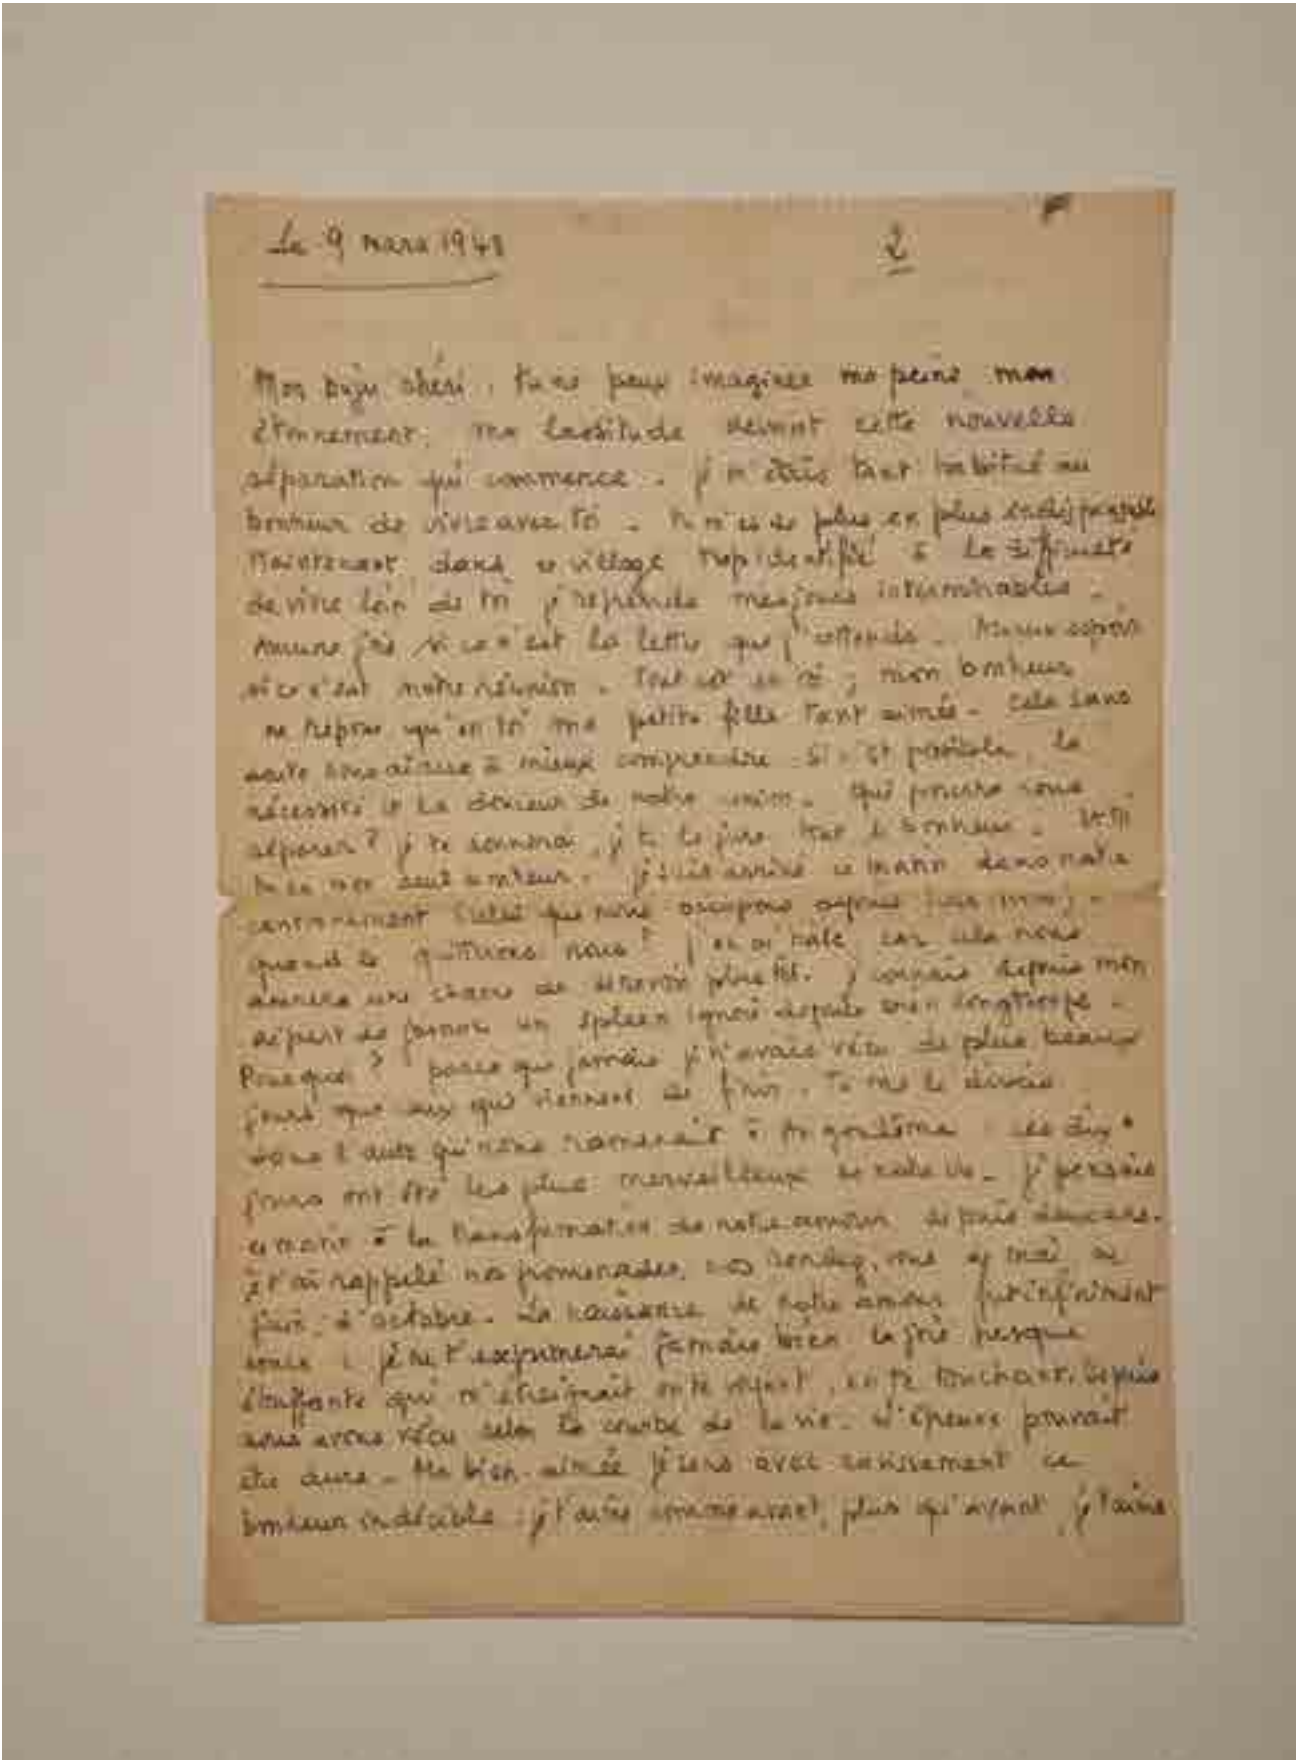 Le 9 mars 1940
2
Mon Zuju chéri, tu ne peux imaginer ma peine mon
étonnement, ma lassitude devant cette nouvelle
séparation qui commence. je m'étais tant habitué au
bonheur de vivre avec toi. tu m'es de plus en plus indispensable
Maintenant dans ce village trop identifié à la
de vivre loin de toi je reprends mes jours interminables.
Aucune joie si ce n'est la lettre que j'attends. Aucun espoir
si ce n'est notre réunion. Tout est en toi ; mon bonheur
ne repose qu'en toi ma petite fille tant aimée. Cela sans
doute nous aidera à mieux comprendre si c'est possible, la
nécessité et la douceur de notre union. Qui pourra nous
séparer ? je te donnerai, je te le jure tout le bonheur.
tu es mon seul bonheur. je suis arrivé ce matin dans notre
cantonnement (celui que nous occupons depuis
quand le quitterons nous ? j'en ai hâte car cela nous
donnera une chance de plus tôt. je connais depuis mon
départ de Jarnac un spleen ignoré depuis bien longtemps.
Pourquoi ? parce que jamais je n'avais vécu de plus beaux
jours que ceux qui viennent de finir. Tu me le disais
dans l'auto qui nous ramenait à Angoulême : ces dix
jours ont été les plus merveilleux de notre vie. je pensais
ce matin à la transformation de notre amour depuis deux ans.
je t'ai rappelé nos promenades, nos rendez-vous de mai, de
juin, d'octobre. La naissance de notre amour fut infiniment
douce : je ne t'exprimerai jamais bien la joie presque
étouffante qui m'étreignait en te voyant, en te touchant. Depuis
nous avons vécu selon la courbe de la vie. L'épreuve pouvait
être dure. Ma bien-aimée je sens avec ravissement ce
bonheur indicible : je t'aime comme avant, plus qu'avant, je t'aime